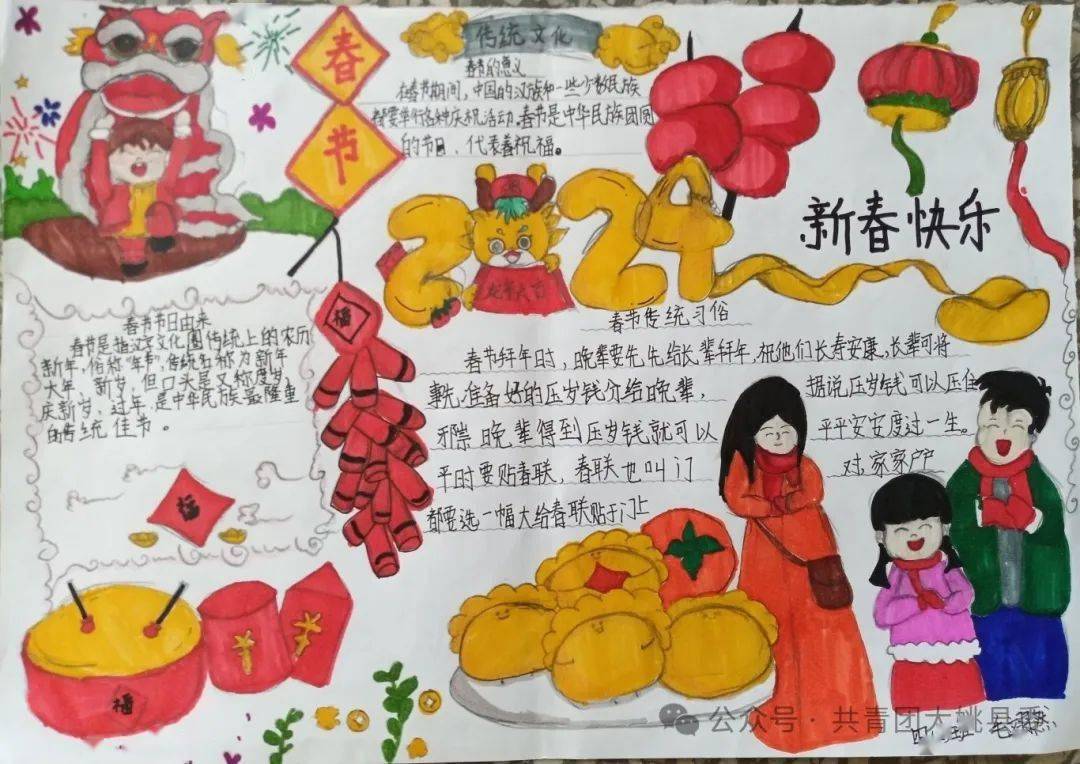 春
节
传统文化
春节的意义
在春节期间，中国的汉族和一些少数民族
都要举行各种庆祝活动.春节是中华民族团圆
的节日、代表着祝福。
2024
龙年大吉
新春快乐
福
春节节日由来
春节是指汉字文化圈传统上的农历
新年，俗称“年节”，传统名称为新年
大年、新岁，但口头是又称度岁、
庆新岁、过年，是中华民族最隆重
的传统佳节。
福
福
春节传统习俗
春节拜年时，晚辈要先先给长辈拜年，祝他们长寿安康，长辈可将
事先准备好的压岁钱分给晚辈， 据说压岁钱可以压住
邪祟 晚辈得到压岁钱就可以 平平安安度过一生。
平时要贴春联，春联也叫门 对，家家户户
都要选一幅大给春联贴于门上
公众号·共青团大姚县委